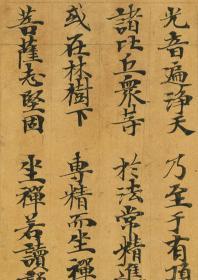 光音遍淨天　乃至于有頂
諸比丘眾等　於法常精進
或在林樹下　專精而坐禪
菩薩志堅固　坐禪若讀